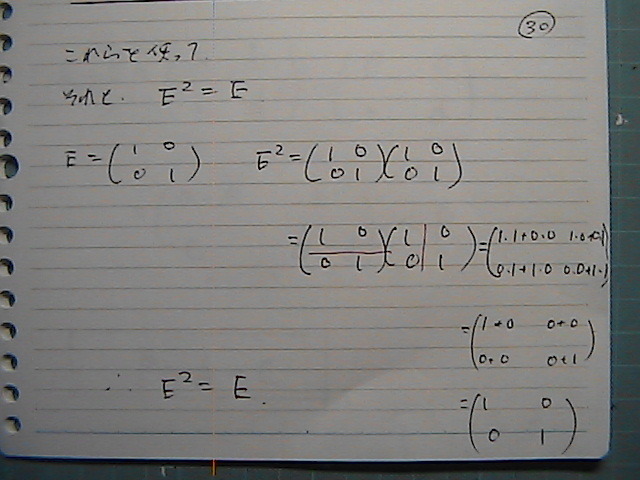 30
これらを使って
それと. E² = E
E = (1 0
0 1) E² = (1 0
0 1)(1 0
0 1)
= (1 0
0 1)(1 0
0 1) = (1.1+0.0 1.0+0.1
0.1+1.0 0.0+1.1)
= (1+0 0+0
0+0 0+1)
∴ E² = E.
= (1 0
0 1)